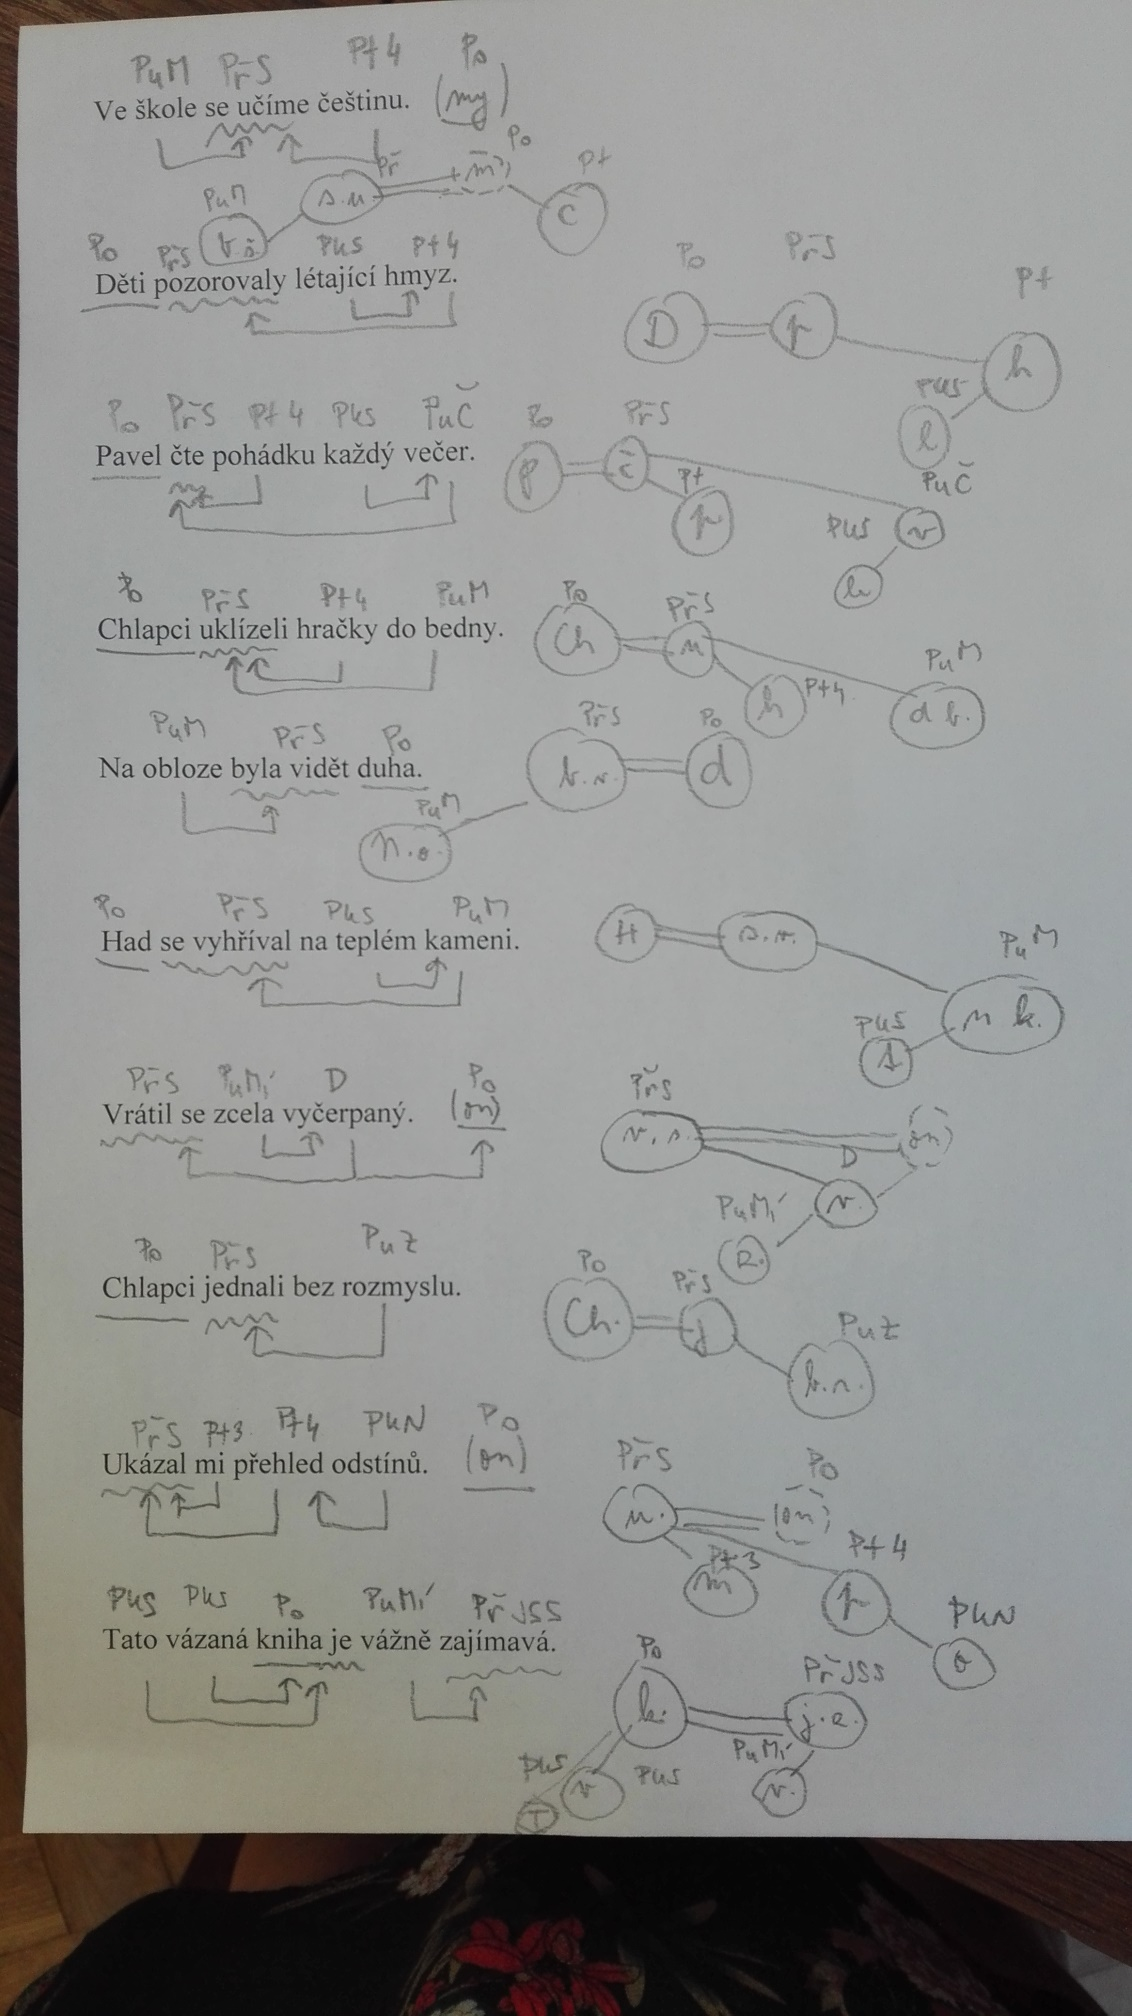 PuM PřS Pt4 Po
Ve škole se učíme češtinu. (my)
Př Po Pt
PuM s.u m č
v š
Po PřS Pks Pt4
Děti pozorovaly létající hmyz.
Po PřS Pt
D p h
Pks
l
Po PřS Pt4 Pks PuČ
Pavel čte pohádku každý večer.
Po PřS
P č Pt PuČ
p Pks v
k
Po PřS Pt4 PuM
Chlapci uklízeli hračky do bedny.
Po PřS PuM
Ch u Pt4
h d b.
PuM PřS Po
Na obloze byla vidět duha.
PřS Po
b.v. d
PuM
N.o.
Po PřS Pks PuM
Had se vyhříval na teplém kameni.
H s.v. PuM
Pks n k.
t
PřS PuMí D Po
Vrátil se zcela vyčerpaný. (on)
PřS
v.s. (on)
D
PuMí v.
z.
Po PřS PuZ
Chlapci jednali bez rozmyslu.
Po PřS
Ch. j PuZ
b.r.
PřS Pt3 Pt4 PkN Po
Ukázal mi přehled odstínů. (on)
PřS Po
u. (on)
Pt3 Pt4
m p PkN
o
Pks Pks Po PuMí PřJSS
Tato vázaná kniha je vážně zajímavá.
Po PřJSS
k. j.z.
PuMí
Pks v Pks v.
T